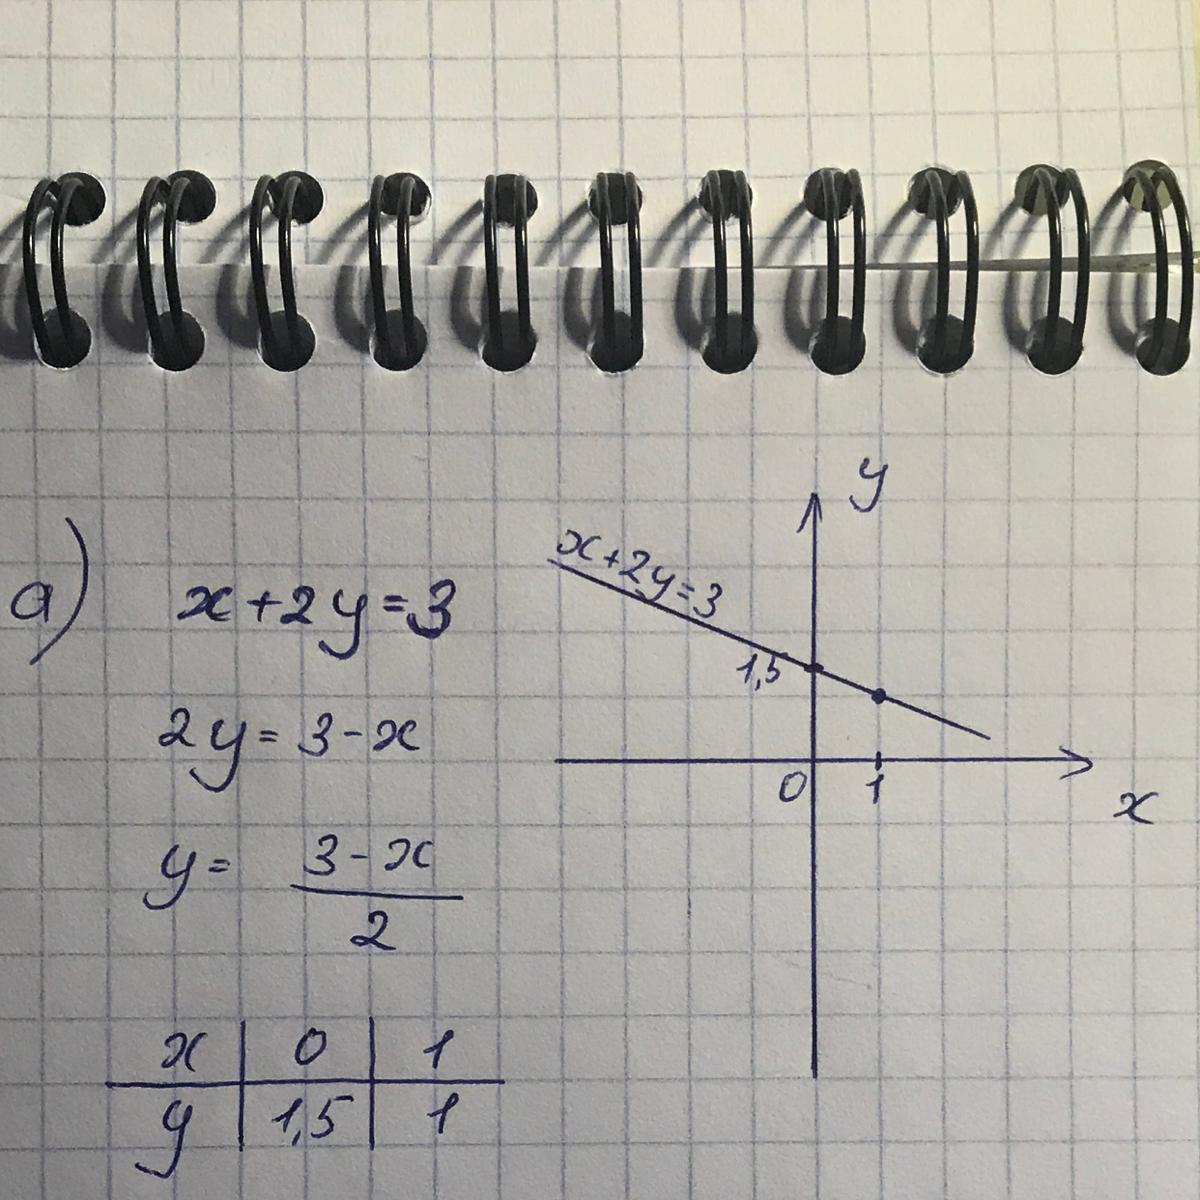 а) x+2y=3
2y = 3-x
y = 3-x
2
x 0 1
y 1,5 1
y
x+2y=3
1,5
0 1
x